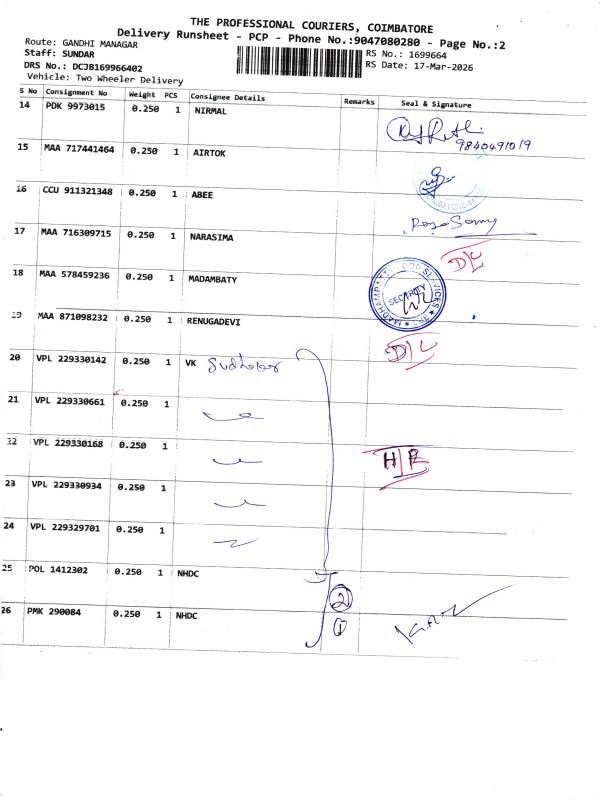 THE PROFESSIONAL COURIERS, COIMBATORE
Delivery Runsheet - PCP - Phone No.:9047080280 - Page No.:2
Route: GANDHI MANAGAR
RS No.: 1699664
Staff: SUNDAR
RS Date: 17-Mar-2026
DRS No.: DCJB169966402
Vehicle: Two Wheeler Delivery
S No Consignment No Weight PCS Consignee Details Remarks Seal & Signature
14 PDK 9973015 0.250 1 NIRMAL
9840491019
15 MAA 717441464 0.250 1 AIRTOK
16 CCU 911321348 0.250 1 ABEE
17 MAA 716309715 0.250 1 NARASIMA
D/L
18 MAA 578459236 0.250 1 MADAMBATY
SECURITY
19 MAA 871098232 0.250 1 RENUGADEVI
D/L
20 VPL 229330142 0.250 1 VK
21 VPL 229330661 0.250 1
22 VPL 229330168 0.250 1
23 VPL 229330934 0.250 1
24 VPL 229329701 0.250 1
25 POL 1412302 0.250 1 NHDC
2
26 PMK 290084 0.250 1 NHDC
1